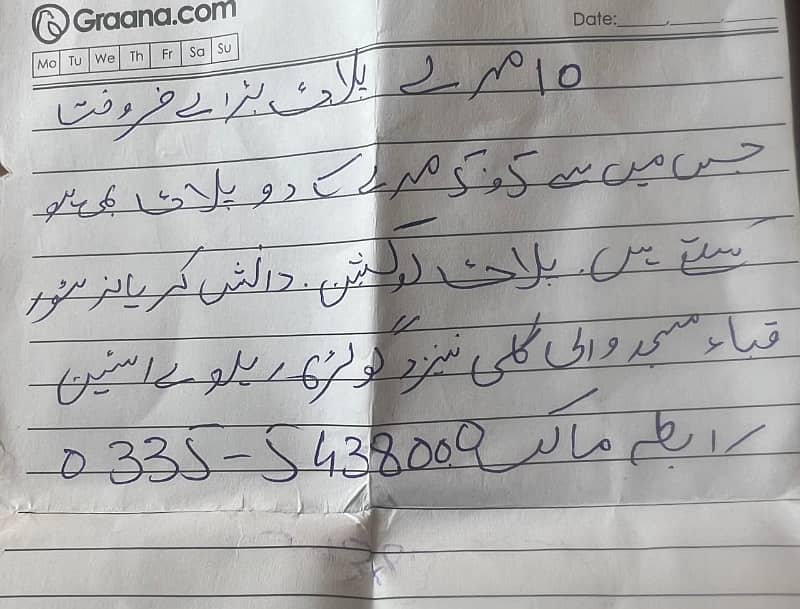 Graana.com
Date:
Mo Tu We Th Fr Sa Su
10 مرلے پلاٹ برائے فروخت
جس میں سے 5 و 5 مرلے کے دو پلاٹ بھی ہو
سکتے ہیں. پلاٹ لوکیشن. دانش کریانہ سٹور
قباء مسجد والی گلی نزد گولڑہ ریلوے اسٹیشن
رابطہ مالک 0335-5438009